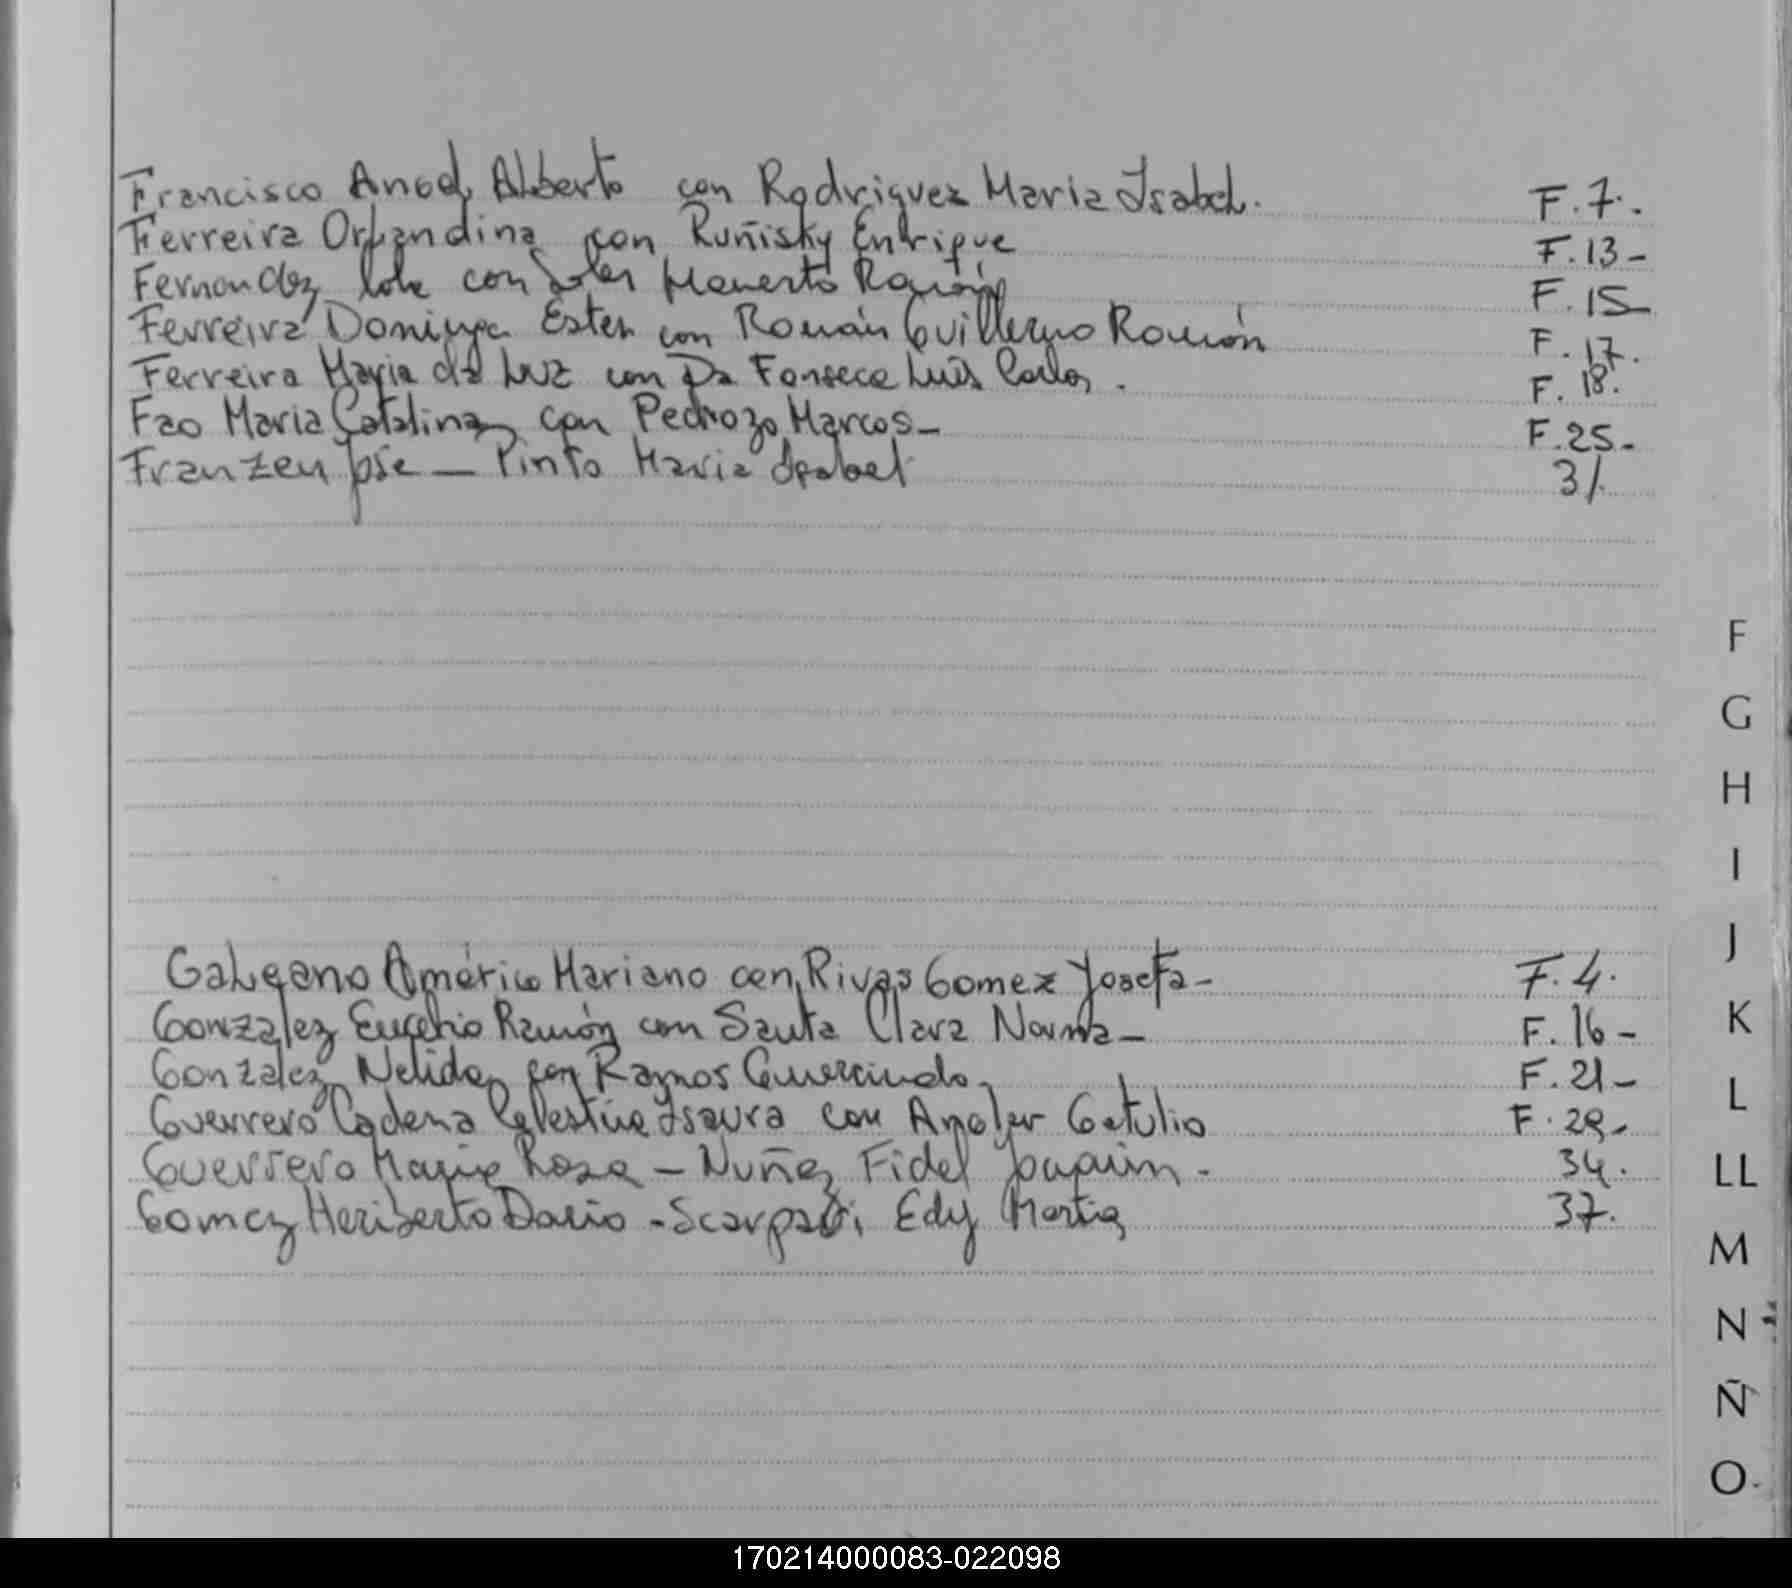 Francisco Angel Alberto con Rodriguez Maria Isabel. F.7.
Ferreira Orlandina con Ruñisky Enrique F.13-
Fernandez con Mamerto Ramón F.15
Ferreira Dominga Ester con Román Guillermo Ramón F.17.
Ferreira Maria da Luz con Da Fonseca Luis Carlos. F.18.
Fao Maria Catalina con Pedrozo Marcos- F.25-
Franzen Jose — Pinto Maria Isabel 31.
F
G
H
I
J
K
L
LL
M
N
Ñ
O
Galeano Américo Mariano con Rivas Gomez Josefa- F.4.
Gonzalez Eugenio Ramón con Santa Clara Norma- F.16-
Gonzalez Nelida con Ramos Gumercindo- F.21-
Guerrero Cadena Celestina Isaura con Getulio F.29-
Guerrero Maria Rosa - Nuñez Fidel Joaquin. 34.
Gomez Heriberto Dario - Edy Marta 37.
170214000083-022098